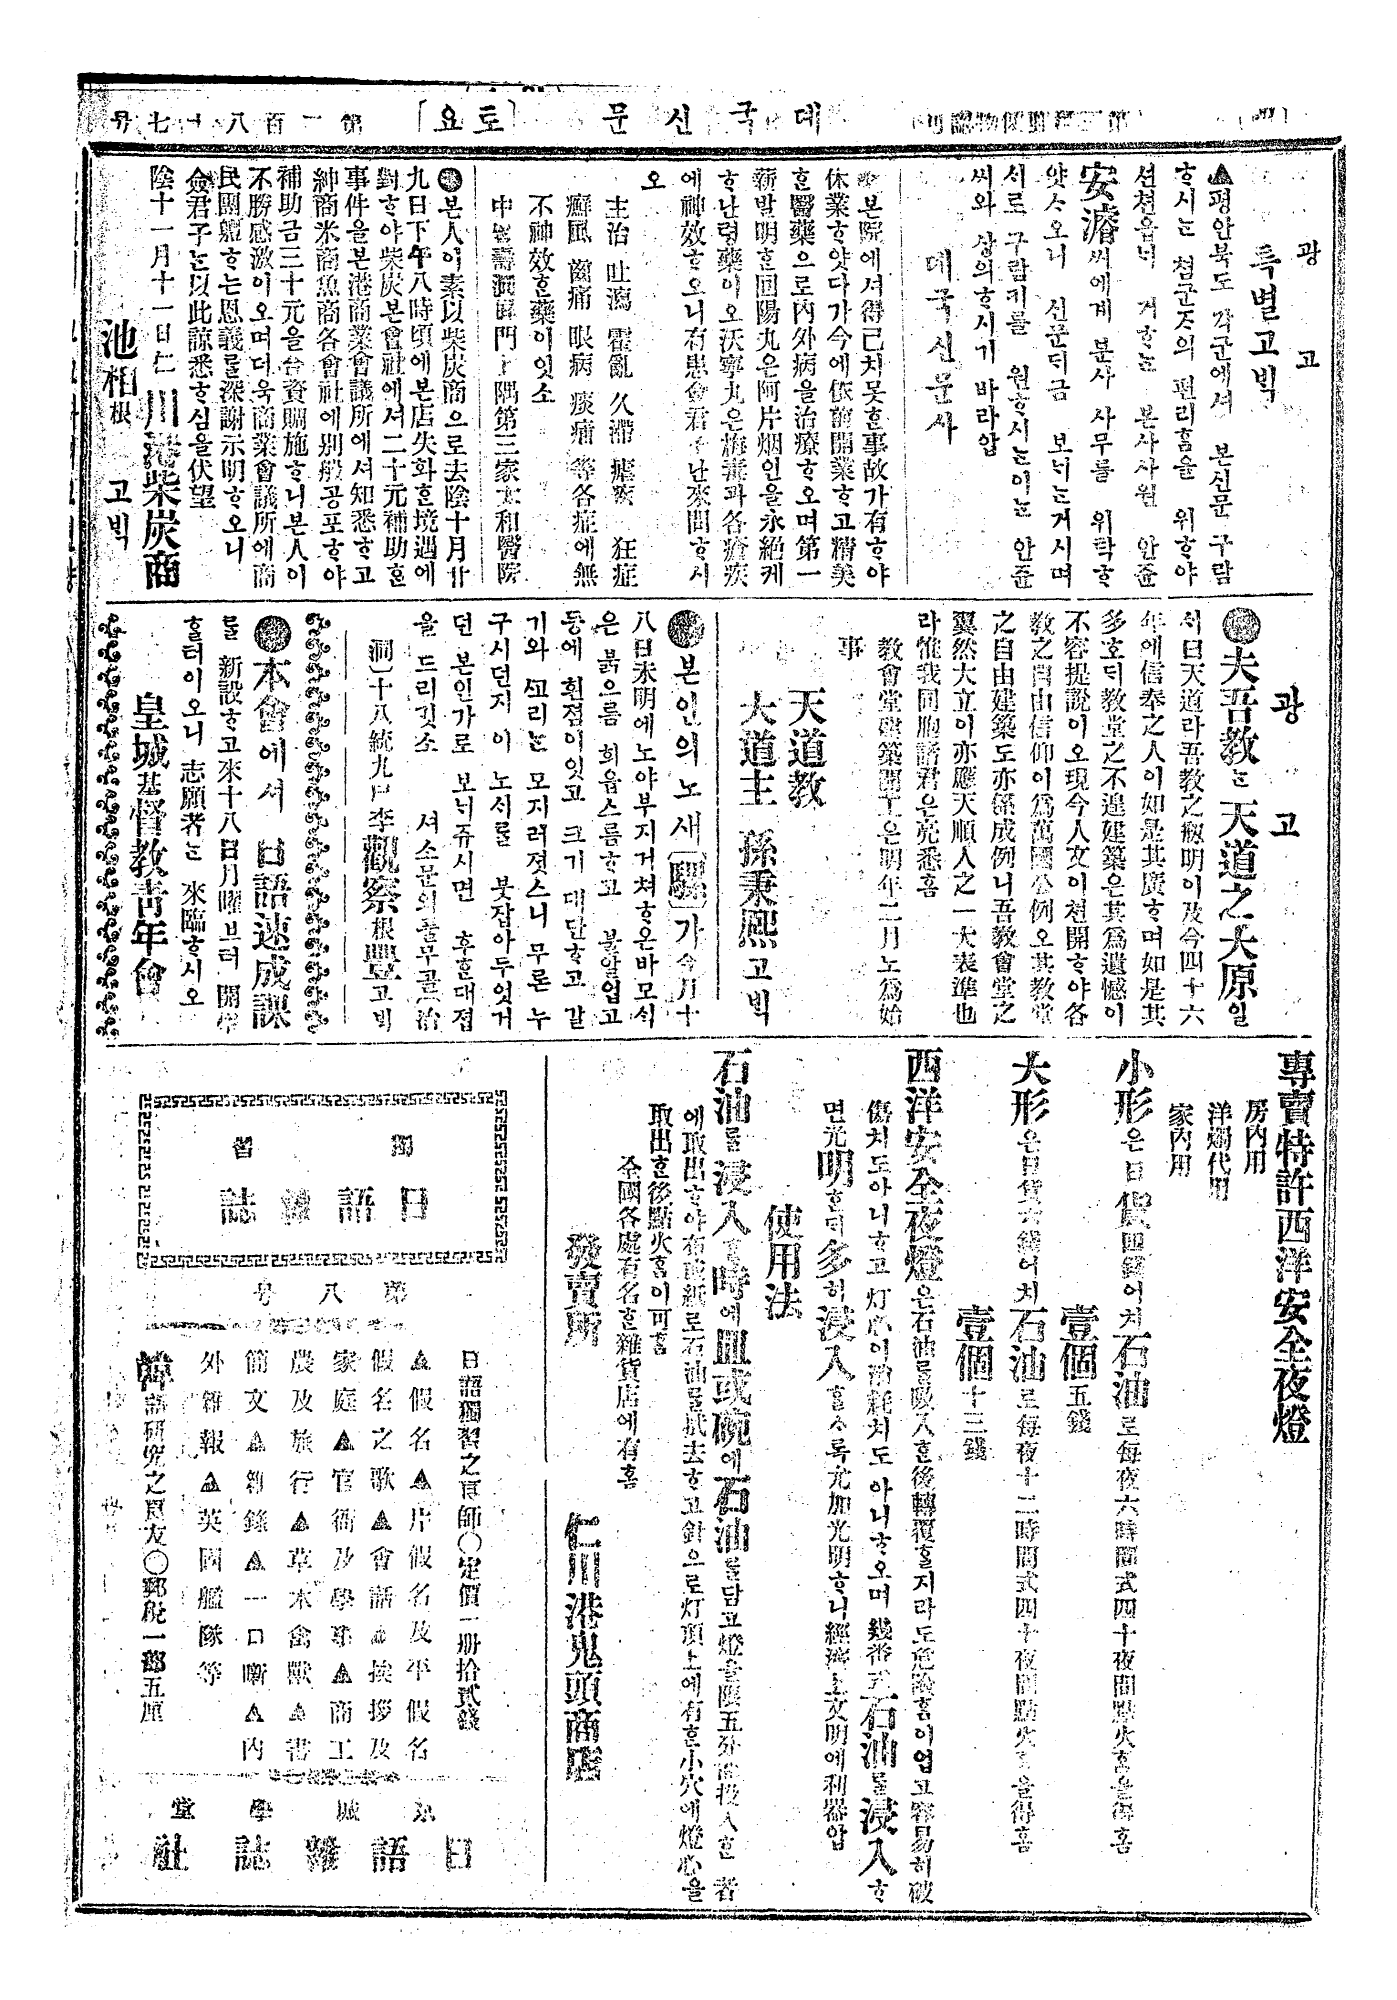 뎨국신문
〔토요〕
第一百八十七号
광고
특별고ᄇᆡᆨ
▲평안북도 각군에셔 본신문 구람
ᄒᆞ시ᄂᆞᆫ 쳠군ᄌᆞ의 편리홈을 위ᄒᆞ야
션쳔읍ᄂᆡ 거ᄒᆞᄂᆞᆫ 본사사원 안쥰
安濬씨에게 분사 사무를 위탁ᄒᆞ
얏ᄉᆞ오니 신문ᄃᆡ금 보ᄂᆡᄂᆞᆫ거시며
서로 구람키를 원ᄒᆞ시ᄂᆞᆫ이ᄂᆞᆫ 안쥰
씨와 샹의ᄒᆞ시기 바라압
뎨국신문사
本院에셔得已치못ᄒᆞᆫ事故가有ᄒᆞ야
休業ᄒᆞ얏다가今에依前開業ᄒᆞ고精美
ᄒᆞᆫ醫藥으로內外病을治療ᄒᆞ오며第一
新발明ᄒᆞᆫ回陽丸은阿片烟인을永絶케
ᄒᆞ난령藥이오沃寧丸은梅毒과各瘡疾
에神效ᄒᆞ오니有患
오
主治 吐瀉 霍亂 久滯 瘧疾 狂症
癬風 齒痛 眼病 痰痛 等各症에無
不神效ᄒᆞᆫ藥이잇소
第三家 大和醫院
●본人이素以柴炭商으로去陰十月廿
九日下午八時頃에본店失화ᄒᆞᆫ境遇에
對ᄒᆞ야柴炭본會社에셔二十元補助ᄒᆞᆫ
事件을본港商業會議所에셔知悉ᄒᆞ고
紳商米商魚商各會社에別般공포ᄒᆞ야
補助金三十元을合資賜施ᄒᆞ니본人이
不勝感激이오며더욱商業會議所에商
民團軆ᄒᆞᄂᆞᆫ恩義를深謝示明ᄒᆞ오니
僉君子ᄂᆞᆫ以此諒悉ᄒᆞ심을伏望
陰十一月十一日仁川港柴炭商
池相根 고ᄇᆡᆨ
광고
●夫吾教ᄂᆞᆫ天道之大原일
ᄉᆡ曰天道라吾敎之刱明이及今四十六
年에信奉之人이如是其廣ᄒᆞ며如是其
多호ᄃᆡ教堂之不遑建築은其爲遺憾이
不容提說이오現今人文이천開ᄒᆞ야各
敎之自由信仰이爲萬國公例오其敎堂
之自由建築도亦係成例니吾敎會堂之
翼然大立이亦應天順人之一大表準也
라惟我同胞諸君은亮悉홈
敎會堂建築開工은明年二月노爲始
事
天道教
大道主 孫秉熙 고ᄇᆡᆨ
●본인의노새〔騾〕가今月十
八日未明에노야부지거쳐ᄒᆞ온바모ᄉᆡᆨ
은 붉으름 희읍스름ᄒᆞ고 불알업고
등에 흰졈이잇고 크기 대단ᄒᆞ고 갈
기와 ᄭᅩ리ᄂᆞᆫ 모지러졋스니 무론 누
구시던지 이 노ᄉᆡ를 붓잡아두엇거
던 본인가로 보ᄂᆡ쥬시면 후ᄒᆞᆫ대졉
을 드리깃소 셔소문외풀무골(冶
洞)十八統九戶 李觀察根豐고ᄇᆡᆨ
●本會에셔 日語速成課
를 新設ᄒᆞ고來十八日月曜브터 開學
ᄒᆞᆯ터이오니 志願者ᄂᆞᆫ 來臨ᄒᆞ시오
皇城基督教靑年會
專賣特許西洋安全夜燈
房內用
洋燭代用
家內用
小形은日貨四錢어치石油로每夜六時間式四十夜間點火홈을得홈
壹個五錢
大形은日貨六錢어치石油로每夜十二時間式四十夜間點火홈을得홈
壹個十三錢
西洋安全夜燈은石油를吸入ᄒᆞᆫ後轉覆ᄒᆞᆯ지라도危險홈이업고容易히破
傷치도아니ᄒᆞ고灯心이消耗치도아니ᄒᆞ오며幾番式石油를浸入ᄒᆞ
면光明ᄒᆞᆫᄃᆡ多히浸入ᄒᆞᆯᄉᆞ록尤加光明ᄒᆞ니經濟上文明에利器압
使用法
石油를浸入ᄒᆞᆯ時에皿或碗에石油를담고燈을限五分間投入ᄒᆞᆫ者
에取出ᄒᆞ야布或紙로石油를拭去ᄒᆞ고針으로灯頂上에有ᄒᆞᆫ小穴에燈心을
取出ᄒᆞᆫ後點火홈이可홈
全國各處有名ᄒᆞᆫ雜貨店에有홈
發賣所 仁川港鬼頭商店
獨習
日語雜誌
第八号
日語獨習之良師〇定價一册拾貳錢
▲假名▲片假名及平假名
假名之歌▲會話▲挨拶及
家庭▲官衙及學事▲商工
農及旅行▲草木禽獸▲書
簡文▲雜錄▲一口噺▲內
外雜報▲英國艦隊等
韓語硏究之良友〇郵稅一部五厘
京城學堂
日語雜誌社